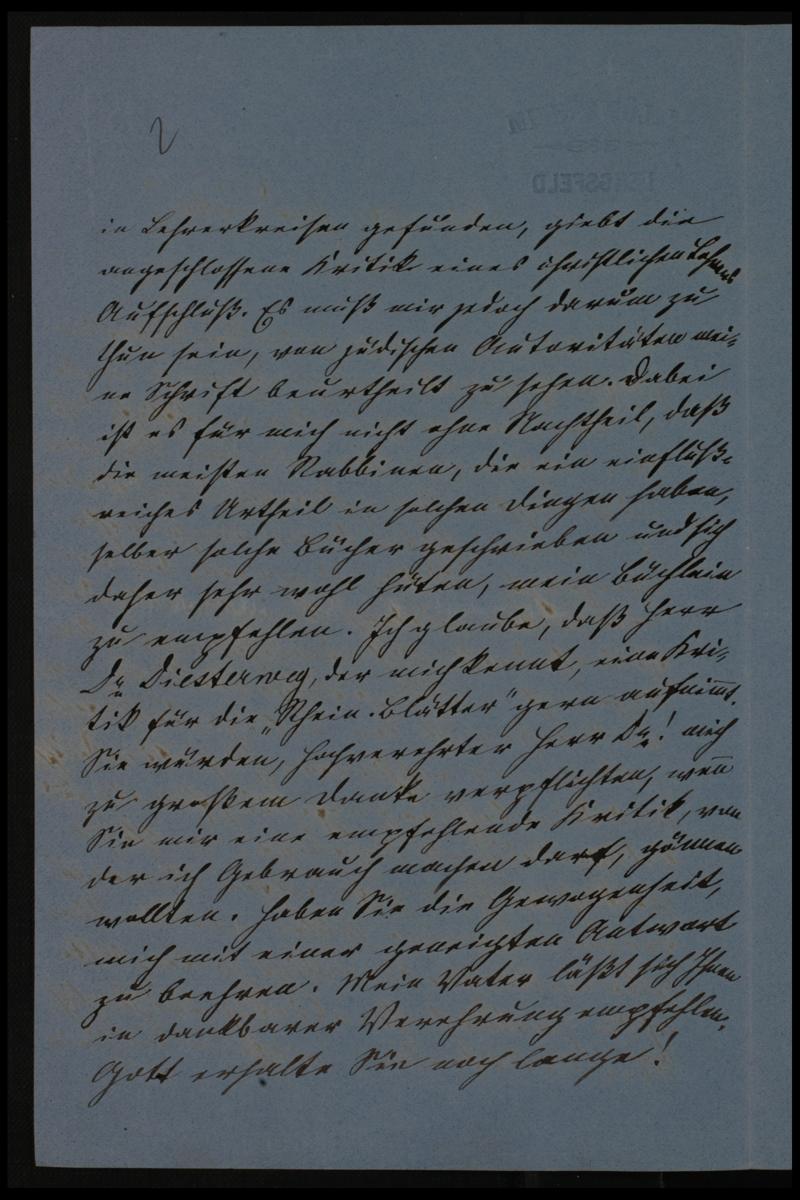 2
in Lehrerkreisen gefunden, giebt die
angeschlossene Kritik eines christlichen Lehrers
Aufschluß. Es muß mir jedoch darum zu
thun sein, von jüdischen Autoritäten mei-
ne Schrift beurtheilt zu sehen. Dabei
ist es für mich nicht ohne Nachtheil, daß
die meisten Rabbinen, die ein einfluß-
reiches Urtheil in solchen Dingen haben,
selber solche Bücher geschrieben und sich
daher sehr wohl hüten, mein Büchlein
zu empfehlen. Ich glaube, daß Herr
Dr Diesterweg, der mich kennt, eine Kri-
tik für die „Rhein. Blätter" gern aufnimmt.
Sie würden, hochverehrter Herr Dr! mich
zu großem Danke verpflichten, wenn
Sie mir eine empfehlende Kritik, von
der ich Gebrauch machen darf, gönnen
wollten. Haben Sie die Gewogenheit,
mich mit einer geneigten Antwort
zu beehren. Mein Vater läßt sich Ihnen
in dankbarer Verehrung empfehlen.
Gott erhalte Sie noch lange!